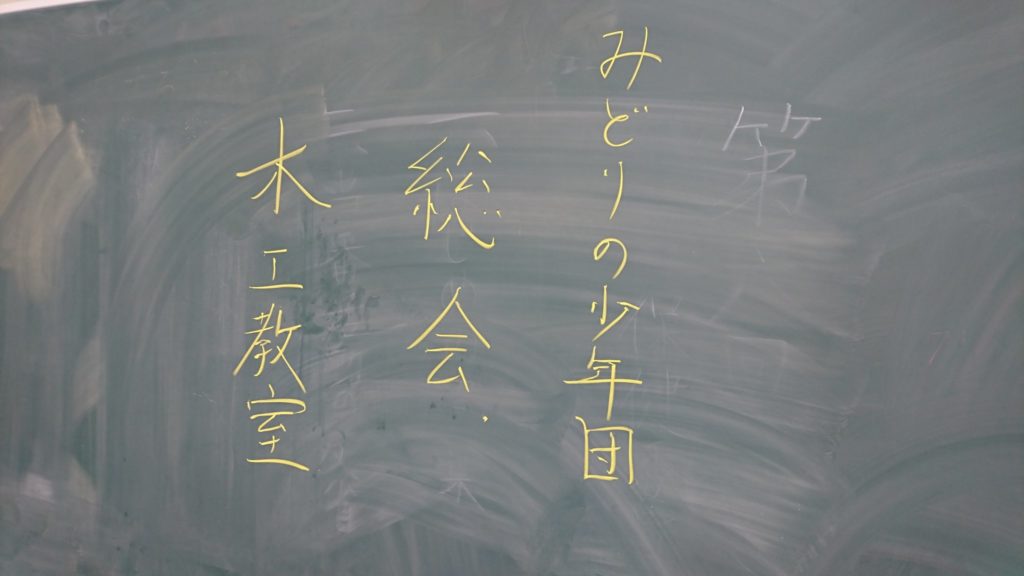 第
みどりの少年団
総会.
木工教室